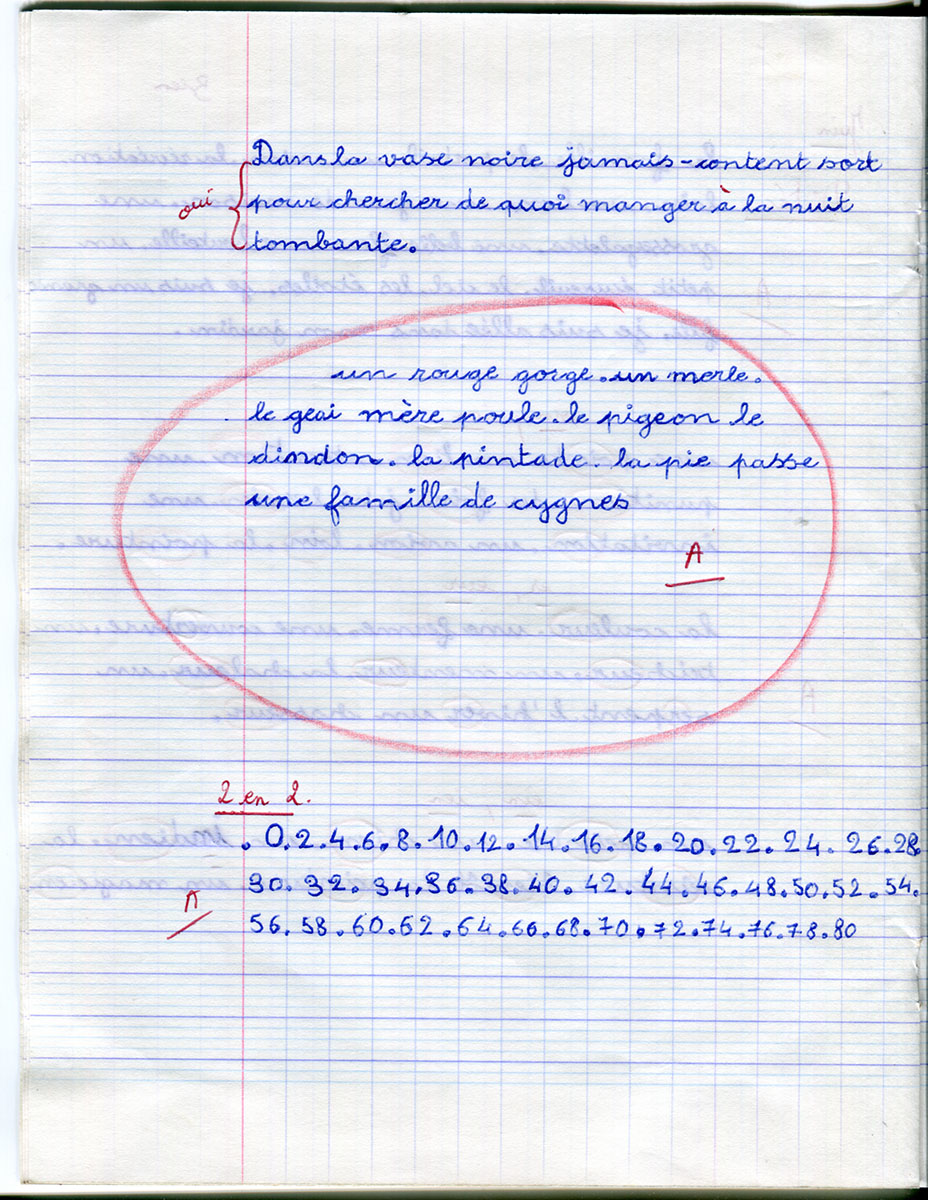 Dans la vase noire jamais-content sort
oui pour chercher de quoi manger à la nuit
tombante.
un rouge gorge. un merle.
le geai mère poule. le pigeon le
dindon. la pintade. la pie passe
une famille de cygnes
A
2 en 2.
. 0.2.4.6.8.10.12.14.16.18.20.22.24.26.28.
30.32.34.36.38.40.42.44.46.48.50.52.54.
A 56.58.60.62.64.66.68.70.72.74.76.78.80